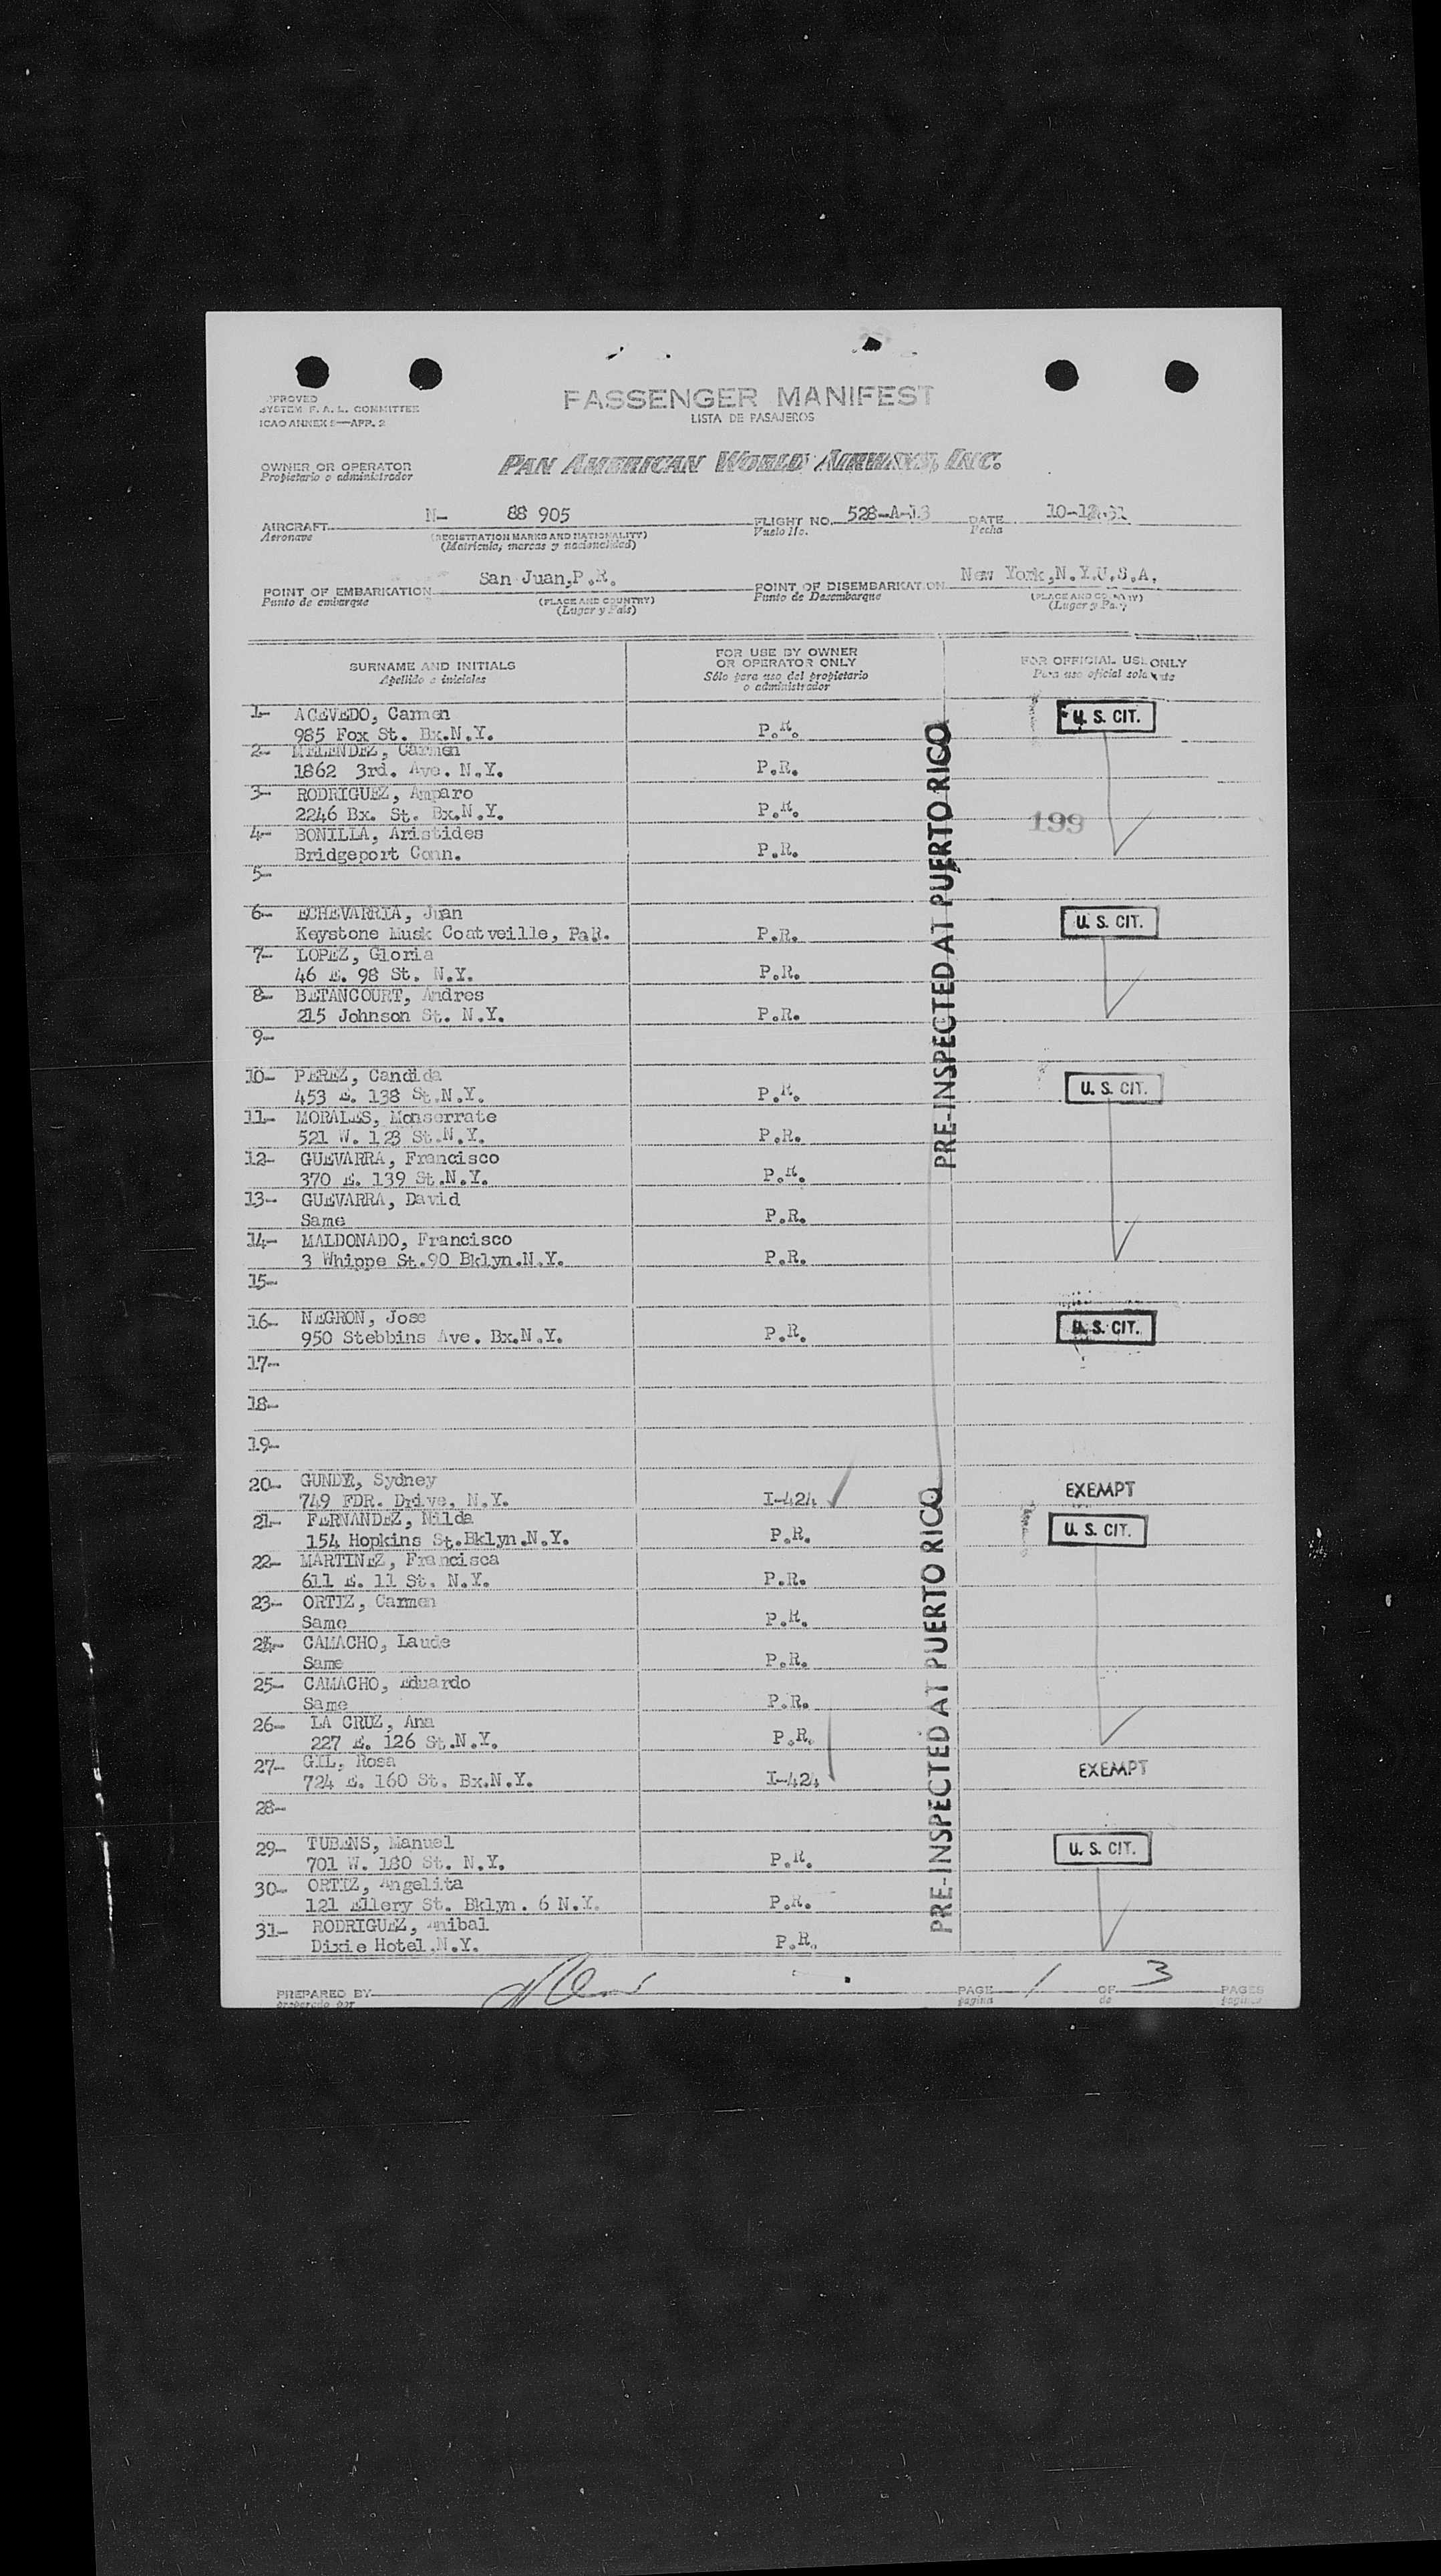 APPROVED
SYSTEM F. A. L. COMMITTEE
ICAO ANNEX 9—APP. 2
PASSENGER MANIFEST
LISTA DE PASAJEROS
OWNER OR OPERATOR
Propietario o administrador
PAN AMERICAN WORLD AIRWAYS, INC.
AIRCRAFT N- 88 905 FLIGHT NO. 528-A-13 DATE
Aeronave (REGISTRATION MARKS AND NATIONALITY) Vuelo No. Fecha
(Matrícula, marcas y nacionalidad)
POINT OF EMBARKATION San Juan,P.R. POINT OF DISEMBARKATION New York,N.Y.U.S.A.
Punto de embarque (PLACE AND COUNTRY) Punto de Desembarque (PLACE AND COUNTRY)
(Lugar y País) (Lugar y País)
SURNAME AND INITIALS
Apellido e iniciales
FOR USE BY OWNER
OR OPERATOR ONLY
Sólo para uso del propietario
o administrador
FOR OFFICIAL USE ONLY
Para uso oficial solamente
1- ACEVEDO, Carmen U. S. CIT.
985 Fox St. Bx.N.Y. P.R.
2- MELENDEZ, Carmen
1862 3rd. Ave. N.Y. P.R.
3- RODRIGUEZ, Amparo
2246 Bx. St. Bx.N.Y. P.R. 199
4- BONILLA, Aristides
Bridgeport Conn. P.R.
5-
6- ECHEVARRIA, Juan U. S. CIT.
Keystone Musk Coatveille, P.R.
7- LOPEZ, Gloria
46 E. 98 St. N.Y. P.R.
8- BETANCOURT, Andres
215 Johnson St. N.Y. P.R.
9-
10- PEREZ, Candida U. S. CIT.
453 E. 138 St.N.Y. P.R.
11- MORALES, Monserrate
521 W. 123 St.N.Y. P.R.
12- GUEVARRA, Francisco
370 E. 139 St.N.Y. P.R.
13- GUEVARRA, David
Same P.R.
14- MALDONADO, Francisco
3 Whippe St.90 Bklyn.N.Y. P.R.
15-
16- NEGRON, Jose U. S. CIT.
950 Stebbins Ave. Bx.N.Y. P.R.
17-
18-
19-
20- Sydney EXEMPT
749 FDR. Drive, N.Y. I-424
21- FERNANDEZ, Nilda U. S. CIT.
154 Hopkins St.Bklyn.N.Y. P.R.
22- MARTINEZ, Francisca
611 E. 11 St. N.Y. P.R.
23- ORTIZ, Carmen
Same P.R.
24- CAMACHO, Laude
Same P.R.
25- CAMACHO, Eduardo
Same P.R.
26- LA CRUZ, Ana
227 E. 126 St.N.Y. P.R.
27- GIL, Rosa EXEMPT
724 E. 160 St. Bx.N.Y. I-424
28-
29- TUBENS, Manuel U. S. CIT.
701 W. 180 St. N.Y. P.R.
30- ORTIZ, Angelita
121 Ellery St. Bklyn. 6 N.Y. P.R.
31- RODRIGUEZ, Anibal
Dixie Hotel.N.Y. P.R.
PRE-INSPECTED AT PUERTO RICO
PRE-INSPECTED AT PUERTO RICO
PREPARED BY PAGE 1 OF 3 PAGES
preparado por página de páginas